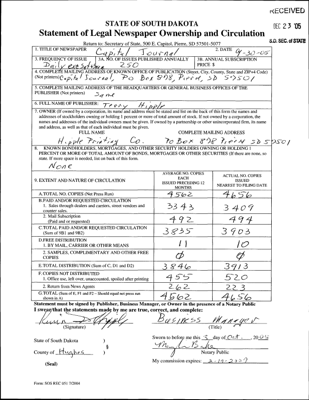 RECEIVED
DEC 23 '05
S.D. SEC. OF STATE
STATE OF SOUTH DAKOTA
Statement of Legal Newspaper Ownership and Circulation
Return to: Secretary of State, 500 E. Capitol, Pierre, SD 57501-5077
1. TITLE OF NEWSPAPER Capital Journal
2. DATE 9-30-05
3. FREQUENCY OF ISSUE
3A. NO. OF ISSUES PUBLISHED ANNUALLY 250
3B. ANNUAL SUBSCRIPTION PRICE $
4. COMPLETE MAILING ADDRESS OF KNOWN OFFICE OF PUBLICATION (Street, City, County, State and ZIP+4 Code)
(Not printers) Capital Journal, PO Box 878, Pierre, SD 57501
5. COMPLETE MAILING ADDRESS OF THE HEADQUARTERS OR GENERAL BUSINESS OFFICES OF THE
PUBLISHER (Not printers) Same
6. FULL NAME OF PUBLISHER: Terry Hipple
7. OWNER (If owned by a corporation, its name and address must be stated and
addresses of stockholders owning or holding 1 percent or more of total amount of stock. If not owned by a corporation, the
names and addresses of the individual owners must be given. If owned by a partnership or other unincorporated firm, its name
and address, as well as that of each individual must be given.
FULL NAME COMPLETE MAILING ADDRESS
Hipple Printing Co. PO Box 878 Pierre SD 57501
8. KNOWN BONDHOLDERS, MORTGAGES, AND OTHER SECURITY HOLDERS OWNING OR HOLDING 1
PERCENT OR MORE OF TOTAL AMOUNT OF BONDS, MORTGAGES OR OTHER SECURITIES (If there are none, so
state. If more space is needed, list on back of this form.
None
9. EXTENT AND NATURE OF CIRCULATION
AVERAGE NO. COPIES EACH ISSUED PRECEDING 12 MONTHS
ACTUAL NO. COPIES ISSUED NEAREST TO FILING DATE
A. TOTAL NO. COPIES (Net Press Run) 4562 4656
B. PAID AND/OR REQUESTED CIRCULATION
1. Sales through dealers and carriers, street vendors and counter sales. 3343 3409
2. Mail Subscription (Paid and or requested) 492 494
C. TOTAL PAID AND/OR REQUESTED CIRCULATION (Sum of 9B1 and 9B2) 3835 3903
D. FREE DISTRIBUTION
1. BY MAIL, CARRIER OR OTHER MEANS 11 10
2. SAMPLES, COMPLIMENTARY AND OTHER FREE COPIES Ø Ø
E. TOTAL DISTRIBUTION (Sum of C, D1 and D2) 3846 3913
F. COPIES NOT DISTRIBUTED
1. Office use, left over, unaccounted, spoiled after printing 455 520
2. Return from News Agents 262 223
G. TOTAL (Sum of E, F1 and F2 - Should equal net press run shown in A) 4562 4656
Statement must be signed by Publisher, Business Manager, or Owner in the presence of a Notary Public
I swear that the statements made by me are true, correct, and complete:
Business Manager
(Signature) (Title)
State of South Dakota )
County of Hughes )
Sworn to before me this 3 day of Oct. 2005
Notary Public
(Seal)
My commission expires:
Form: SOS REC 051 7/2004